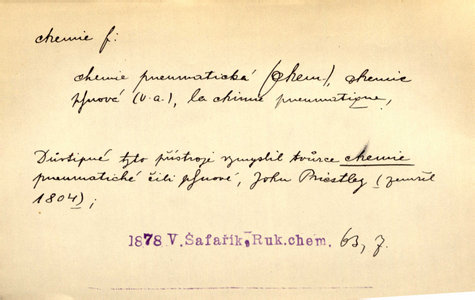 chemie f:
chemie pneumatická (chem), chemie
plynová (v.a.), la chimie pneumatique,
Důvtipné tyto přístroje vymyslil tvůrce chemie
pneumatické čili plynové, John Priestley (zemřel
1804);
1878 V.Šafařík, Ruk.chem. 63, 7.